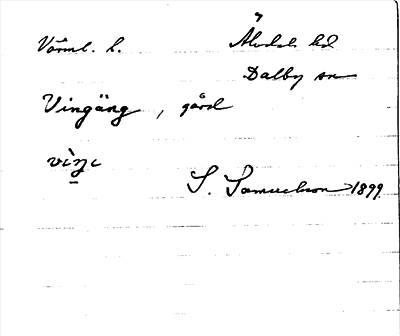 Värml. l. Älvdals hd
Dalby sn
Vingäng, gård
S. Samuelsson 1899.